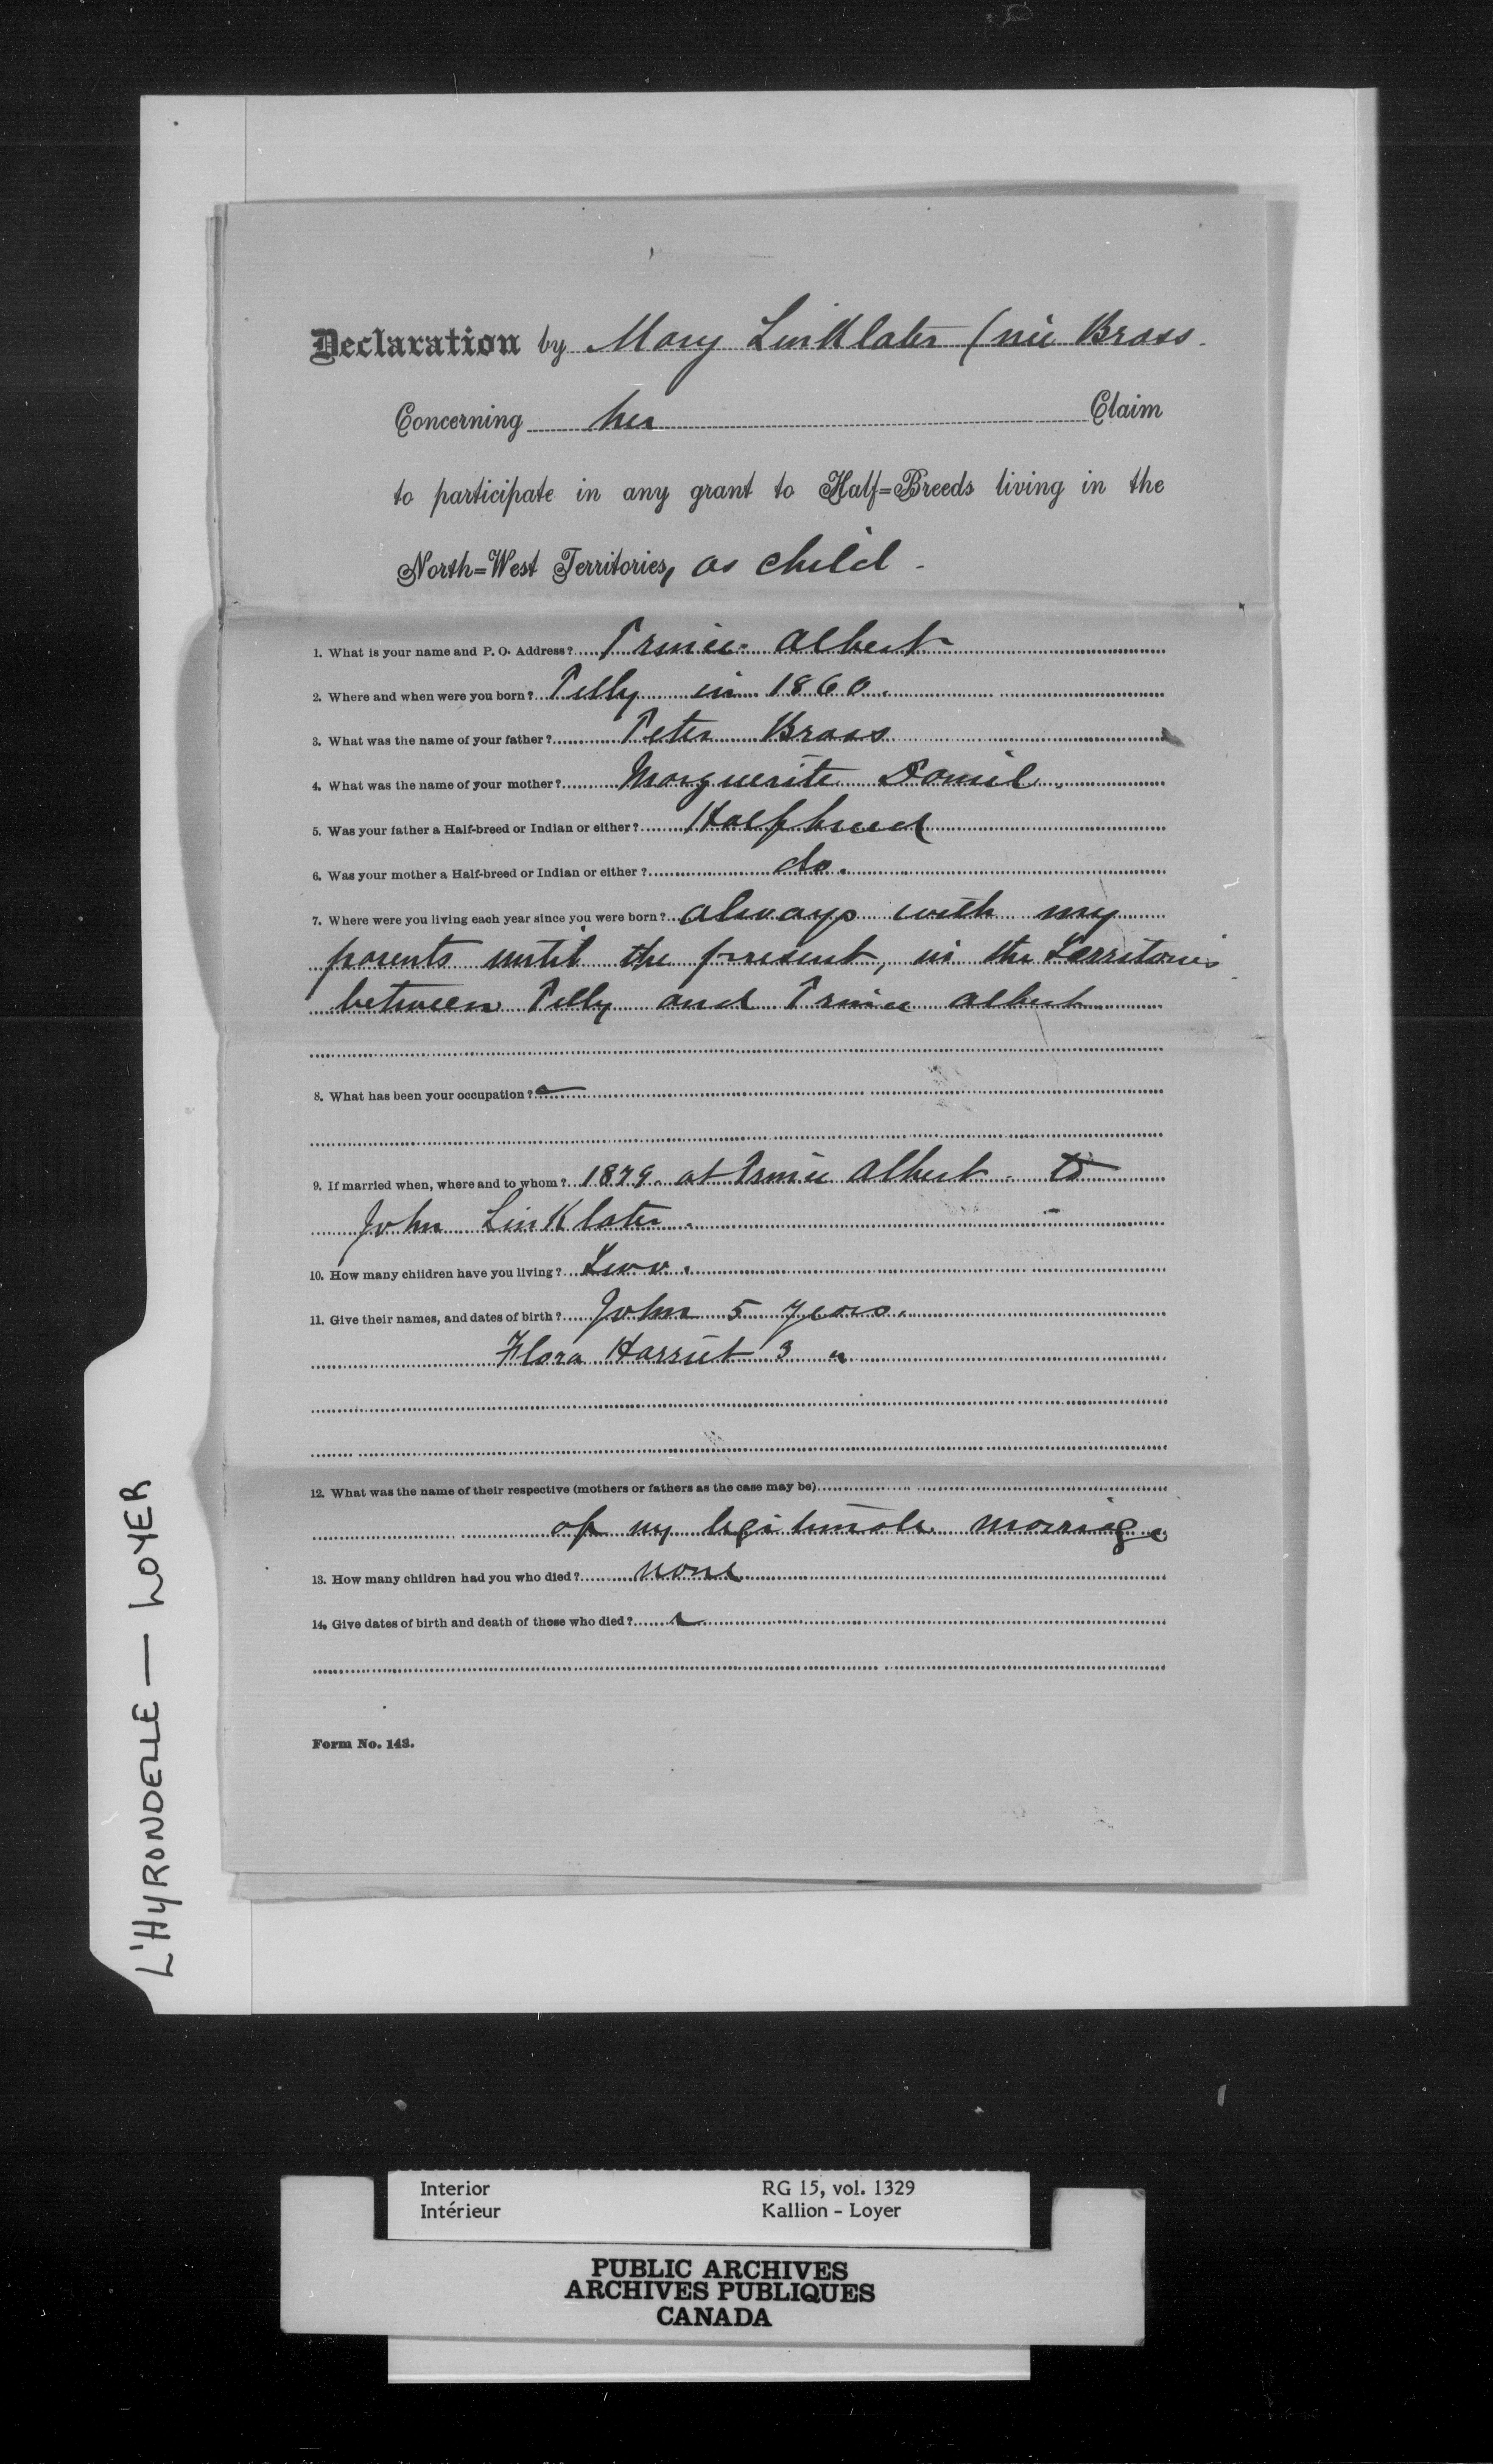 Declaration by Mary Linklater (née Brass.
Concerning her Claim
to participate in any grant to Half=Breeds living in the
North=West Territories, as child.
1. What is your name and P. O. Address? Prince Albert
2. Where and when were you born? Pelly in 1860.
3. What was the name of your father? Peter Brass
4. What was the name of your mother? Marguerite Daniel.
5. Was your father a Half-breed or Indian or either? Halfbreed
6. Was your mother a Half-breed or Indian or either? do.
7. Where were you living each year since you were born? always with my
parents until the present, in the Territories
between Pelly and Prince Albert
8. What has been your occupation?
9. If married when, where and to whom? 1879. at Prince Albert. to
John Linklater.
10. How many children have you living? Two.
11. Give their names, and dates of birth? John 5 years.
Flora Harriet 3 "
12. What was the name of their respective (mothers or fathers as the case may be)
of my legitimate marriage
13. How many children had you who died? none
14. Give dates of birth and death of those who died?
Form No. 143.
L'HYRONDELLE — LOYER
Interior RG 15, vol. 1329
Intérieur Kallion - Loyer
PUBLIC ARCHIVES
ARCHIVES PUBLIQUES
CANADA